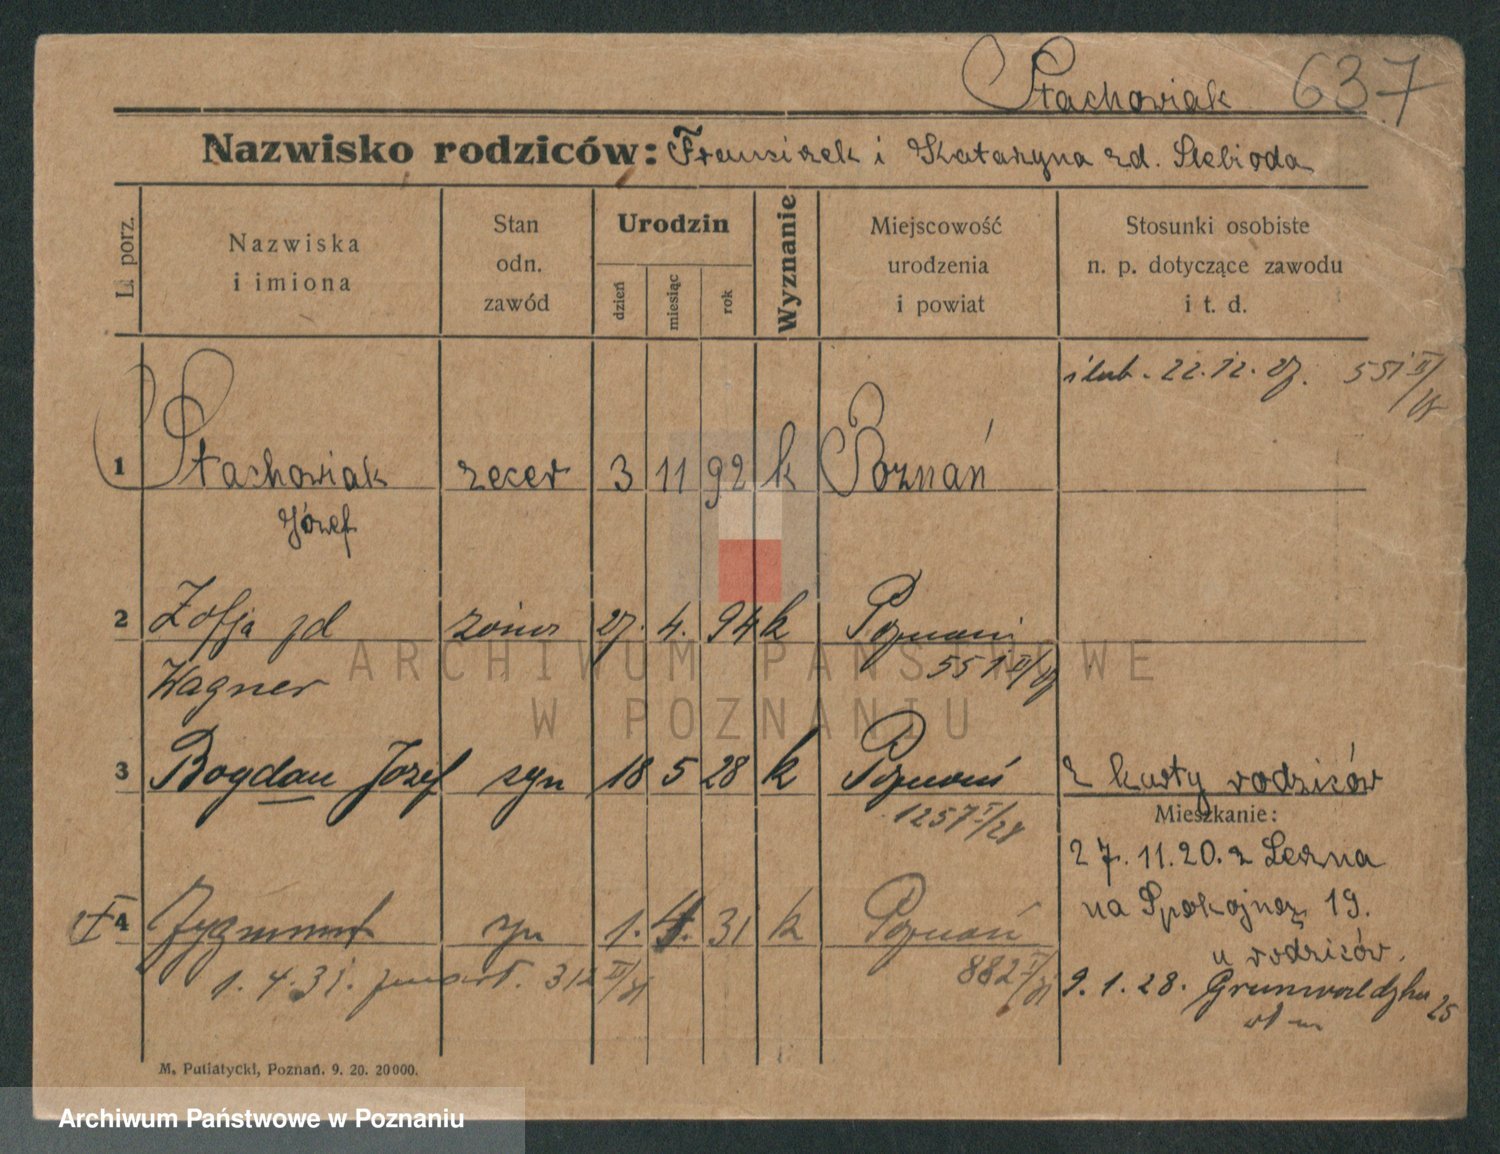 Stachowiak 637
Nazwisko rodziców: Franciszek i Katarzyna zd. Slebioda
L. porz.
Nazwiska
i imiona
Stan
odn.
zawód
Urodzin
dzień
miesiąc
rok
Wyznanie
Miejscowość
urodzenia
i powiat
Stosunki osobiste
n. p. dotyczące zawodu
i t. d.
ślub. 22.12.27. 551 II/
1 Stachowiak zecer 3 11 92 k Poznań
Józef
2 Zofja zd żona 27. 4. 94 k Poznań
Wagner 551 II/27
3 Bogdan Józef syn 18 5 28 k Poznań z karty rodziców
1257 I/28
Mieszkanie:
27.11.20. z Leszna
na Spokojną 19.
u rodziców.
4 Zygmunt syn 1. 4. 31 k Poznań
1.4.31. zmarł. 312 II/31
882 I/31
9.1.28. Grunwaldzka 25
M. Putiatycki, Poznań. 9. 20. 20000.
ARCHIWUM PAŃSTWOWE
W POZNANIU
Archiwum Państwowe w Poznaniu